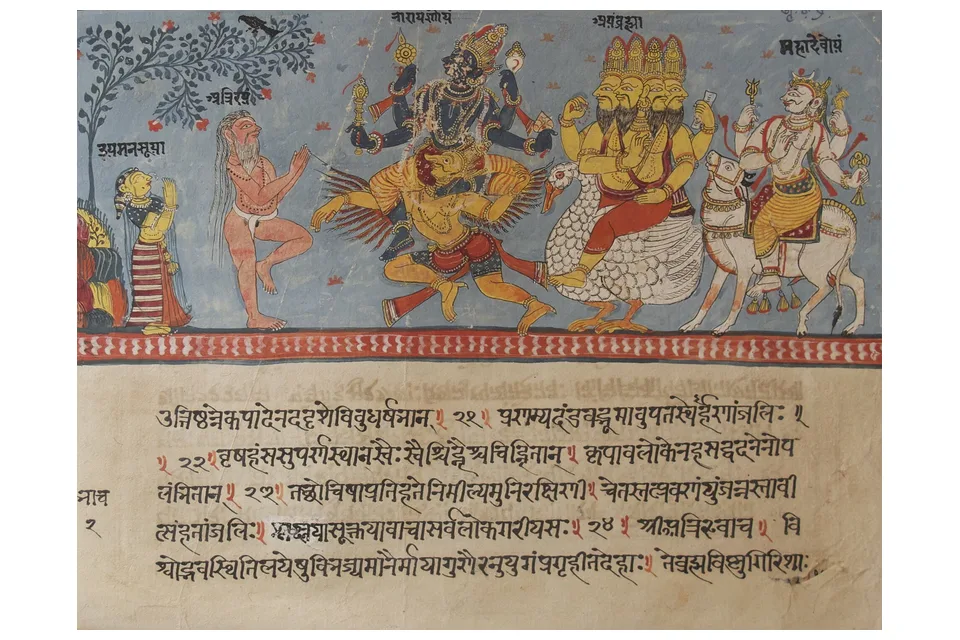 नारायणोयं
अयंब्रह्मा
महादेवोयं
अत्रिरयं
इयमनसूया
उत्तिष्ठन्नेकपादेनददृशेविबुधर्षभान्॥ २१॥ प्रणम्यदंडवद्भूमावुपतस्थेर्हणांजलिः॥
॥२२॥वृषहंससुपर्णस्थान्स्वैः स्वैश्चिह्नैश्चचिह्नितान्॥ कृपावलोकेनहसद्वदनेनोप
लंभितान्॥ २३॥ तद्रोचिषाप्रतिहतेनिमील्यमुनिरक्षिणी॥ चेतस्तत्प्रवणंयुंजन्नस्तावी
त्संहतांजलिः॥ श्लक्ष्णयासूक्तयावाचासर्वलोकगरीयसः॥ २४॥ श्रीअत्रिरुवाच॥ वि
श्वोद्भवस्थितिलयेषुविभज्यमानैर्मायागुणैरनुयुगंप्रगृहीतदेहाः॥ तेब्रह्मविष्णुगिरिशाः